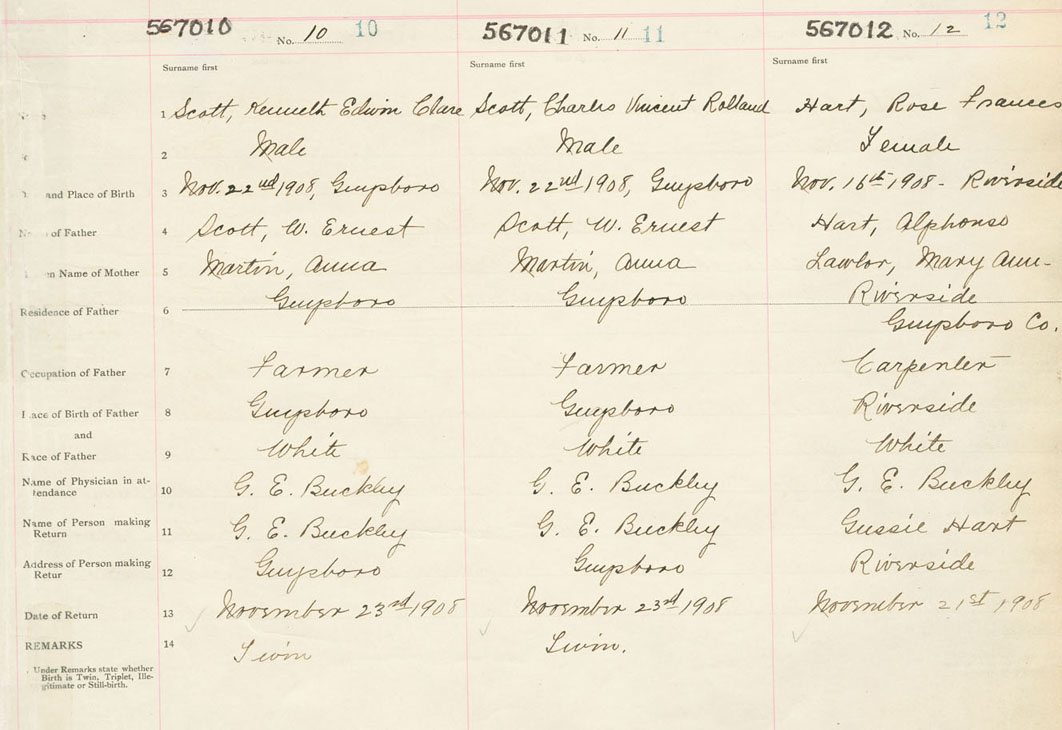 567010 No. 10 10 567011 No. 11 11 567012 No. 12 12
Surname first Surname first Surname first
1 Scott, Kenneth Edwin Clare Scott, Charles Vincent Rolland Hart, Rose Frances
2 Male Male Female
and Place of Birth 3 Nov. 22nd 1908, Guysboro Nov. 22nd 1908, Guysboro Nov. 16th 1908 - Riverside
of Father 4 Scott, W. Ernest Scott, W. Ernest Hart, Alphonso
Name of Mother 5 Martin, Anna Martin, Anna Lawlor, Mary Ann-
Residence of Father 6 Guysboro Guysboro Riverside
Guysboro Co.
Occupation of Father 7 Farmer Farmer Carpenter
Place of Birth of Father 8 Guysboro Guysboro Riverside
and
Race of Father 9 White White White
Name of Physician in at-
tendance 10 G. E. Buckley G. E. Buckley G. E. Buckley
Name of Person making
Return 11 G. E. Buckley G. E. Buckley Gussie Hart
Address of Person making
Retur 12 Guysboro Guysboro Riverside
Date of Return 13 November 23rd 1908 November 23rd 1908 November 21st 1908
REMARKS 14 Twin Twin.
Under Remarks state whether
Birth is Twin, Triplet, Ille-
gitimate or Still-birth.